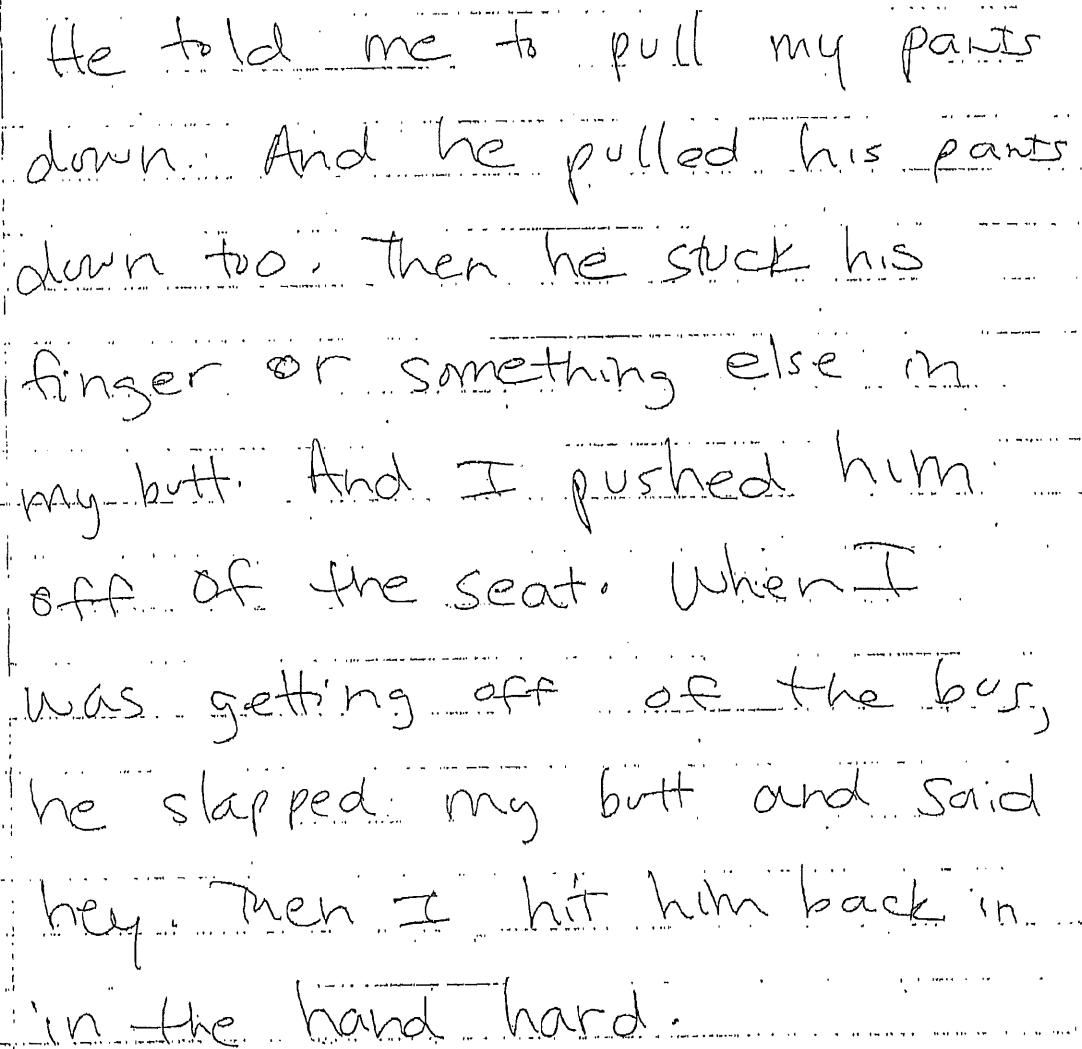 He told me to pull my pants
down. And he pulled his pants
down too. Then he stuck his
finger or something else in
my butt. And I pushed him
off of the seat. When I
was getting off of the bus,
he slapped my butt and said
hey. Then I hit him back in
in the hand hard.